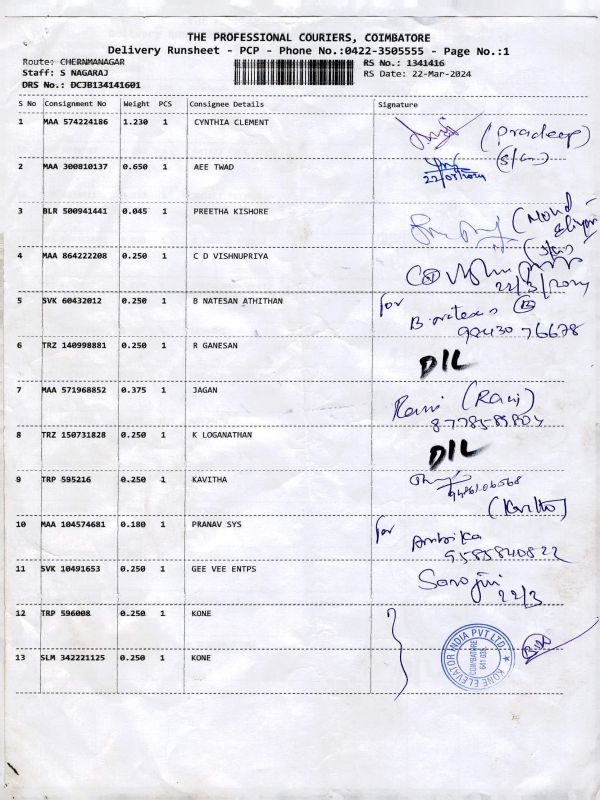 THE PROFESSIONAL COURIERS, COIMBATORE
Delivery Runsheet - PCP - Phone No.:0422-3505555 - Page No.:1
Route: CHERNMANAGAR RS No.: 1341416
Staff: S NAGARAJ RS Date: 22-Mar-2024
DRS No.: DCJB134141601
S No Consignment No Weight PCS Consignee Details Signature
1 MAA 574224186 1.230 1 CYNTHIA CLEMENT (Pradeep)
2 MAA 300810137 0.650 1 AEE TWAD
3 BLR 500941441 0.045 1 PREETHA KISHORE
4 MAA 864222208 0.250 1 C D VISHNUPRIYA 22/3/2024
5 SVK 60432012 0.250 1 B NATESAN ATHITHAN for
98430 76678
6 TRZ 140998881 0.250 1 R GANESAN D/L
7 MAA 571968852 0.375 1 JAGAN Ravi (Ravi)
8 TRZ 150731828 0.250 1 K LOGANATHAN D/L
9 TRP 595216 0.250 1 KAVITHA
10 MAA 104574681 0.180 1 PRANAV SYS for Ambika
9585840822
11 SVK 10491653 0.250 1 GEE VEE ENTPS Sarojini
22/3
12 TRP 596008 0.250 1 KONE
13 SLM 342221125 0.250 1 KONE
KONE ELEVATOR INDIA PVT LTD.
COIMBATORE